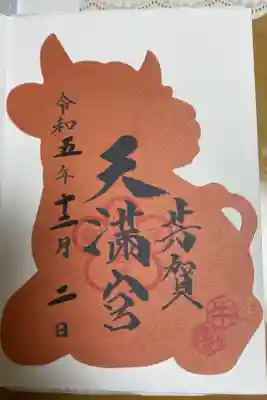 芳賀
天満宮
令和五年十二月二日